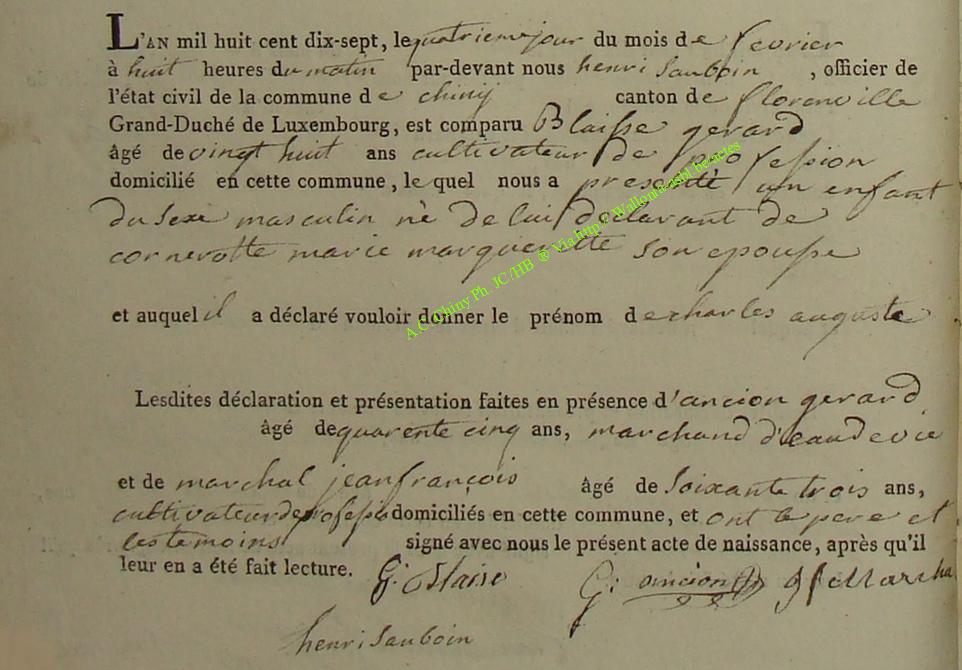 L'AN mil huit cent dix-sept, le quatrieme jour du mois de fevrier
à huit heures du matin par-devant nous henri Sauboin , officier de
l'état civil de la commune de chinij canton de florenville
Grand-Duché de Luxembourg, est comparu Blaisse gerard
âgé de vingt huit ans cultivateur de profession
domicilié en cette commune, le quel nous a presenté un enfant
du Sexe masculin né de lui déclarant de
cornerotte marie margueritte son epousse
et auquel il a déclaré vouloir donner le prénom de charles auguste
Lesdites déclaration et présentation faites en présence d'ancion gerard
âgé de quarente cinq ans, marchand d'eau de vie
et de marchal jean françois âgé de Soixante trois ans,
cultivateur de professio domiciliés en cette commune, et ont le pere et
les temoins signé avec nous le présent acte de naissance, après qu'il
leur en a été fait lecture. G: Blaise G: ancion JF Marcha
henri Sauboin
A.C. Chiny Ph. JC/HB ® Via http://Wallonia.asbl.be.actes